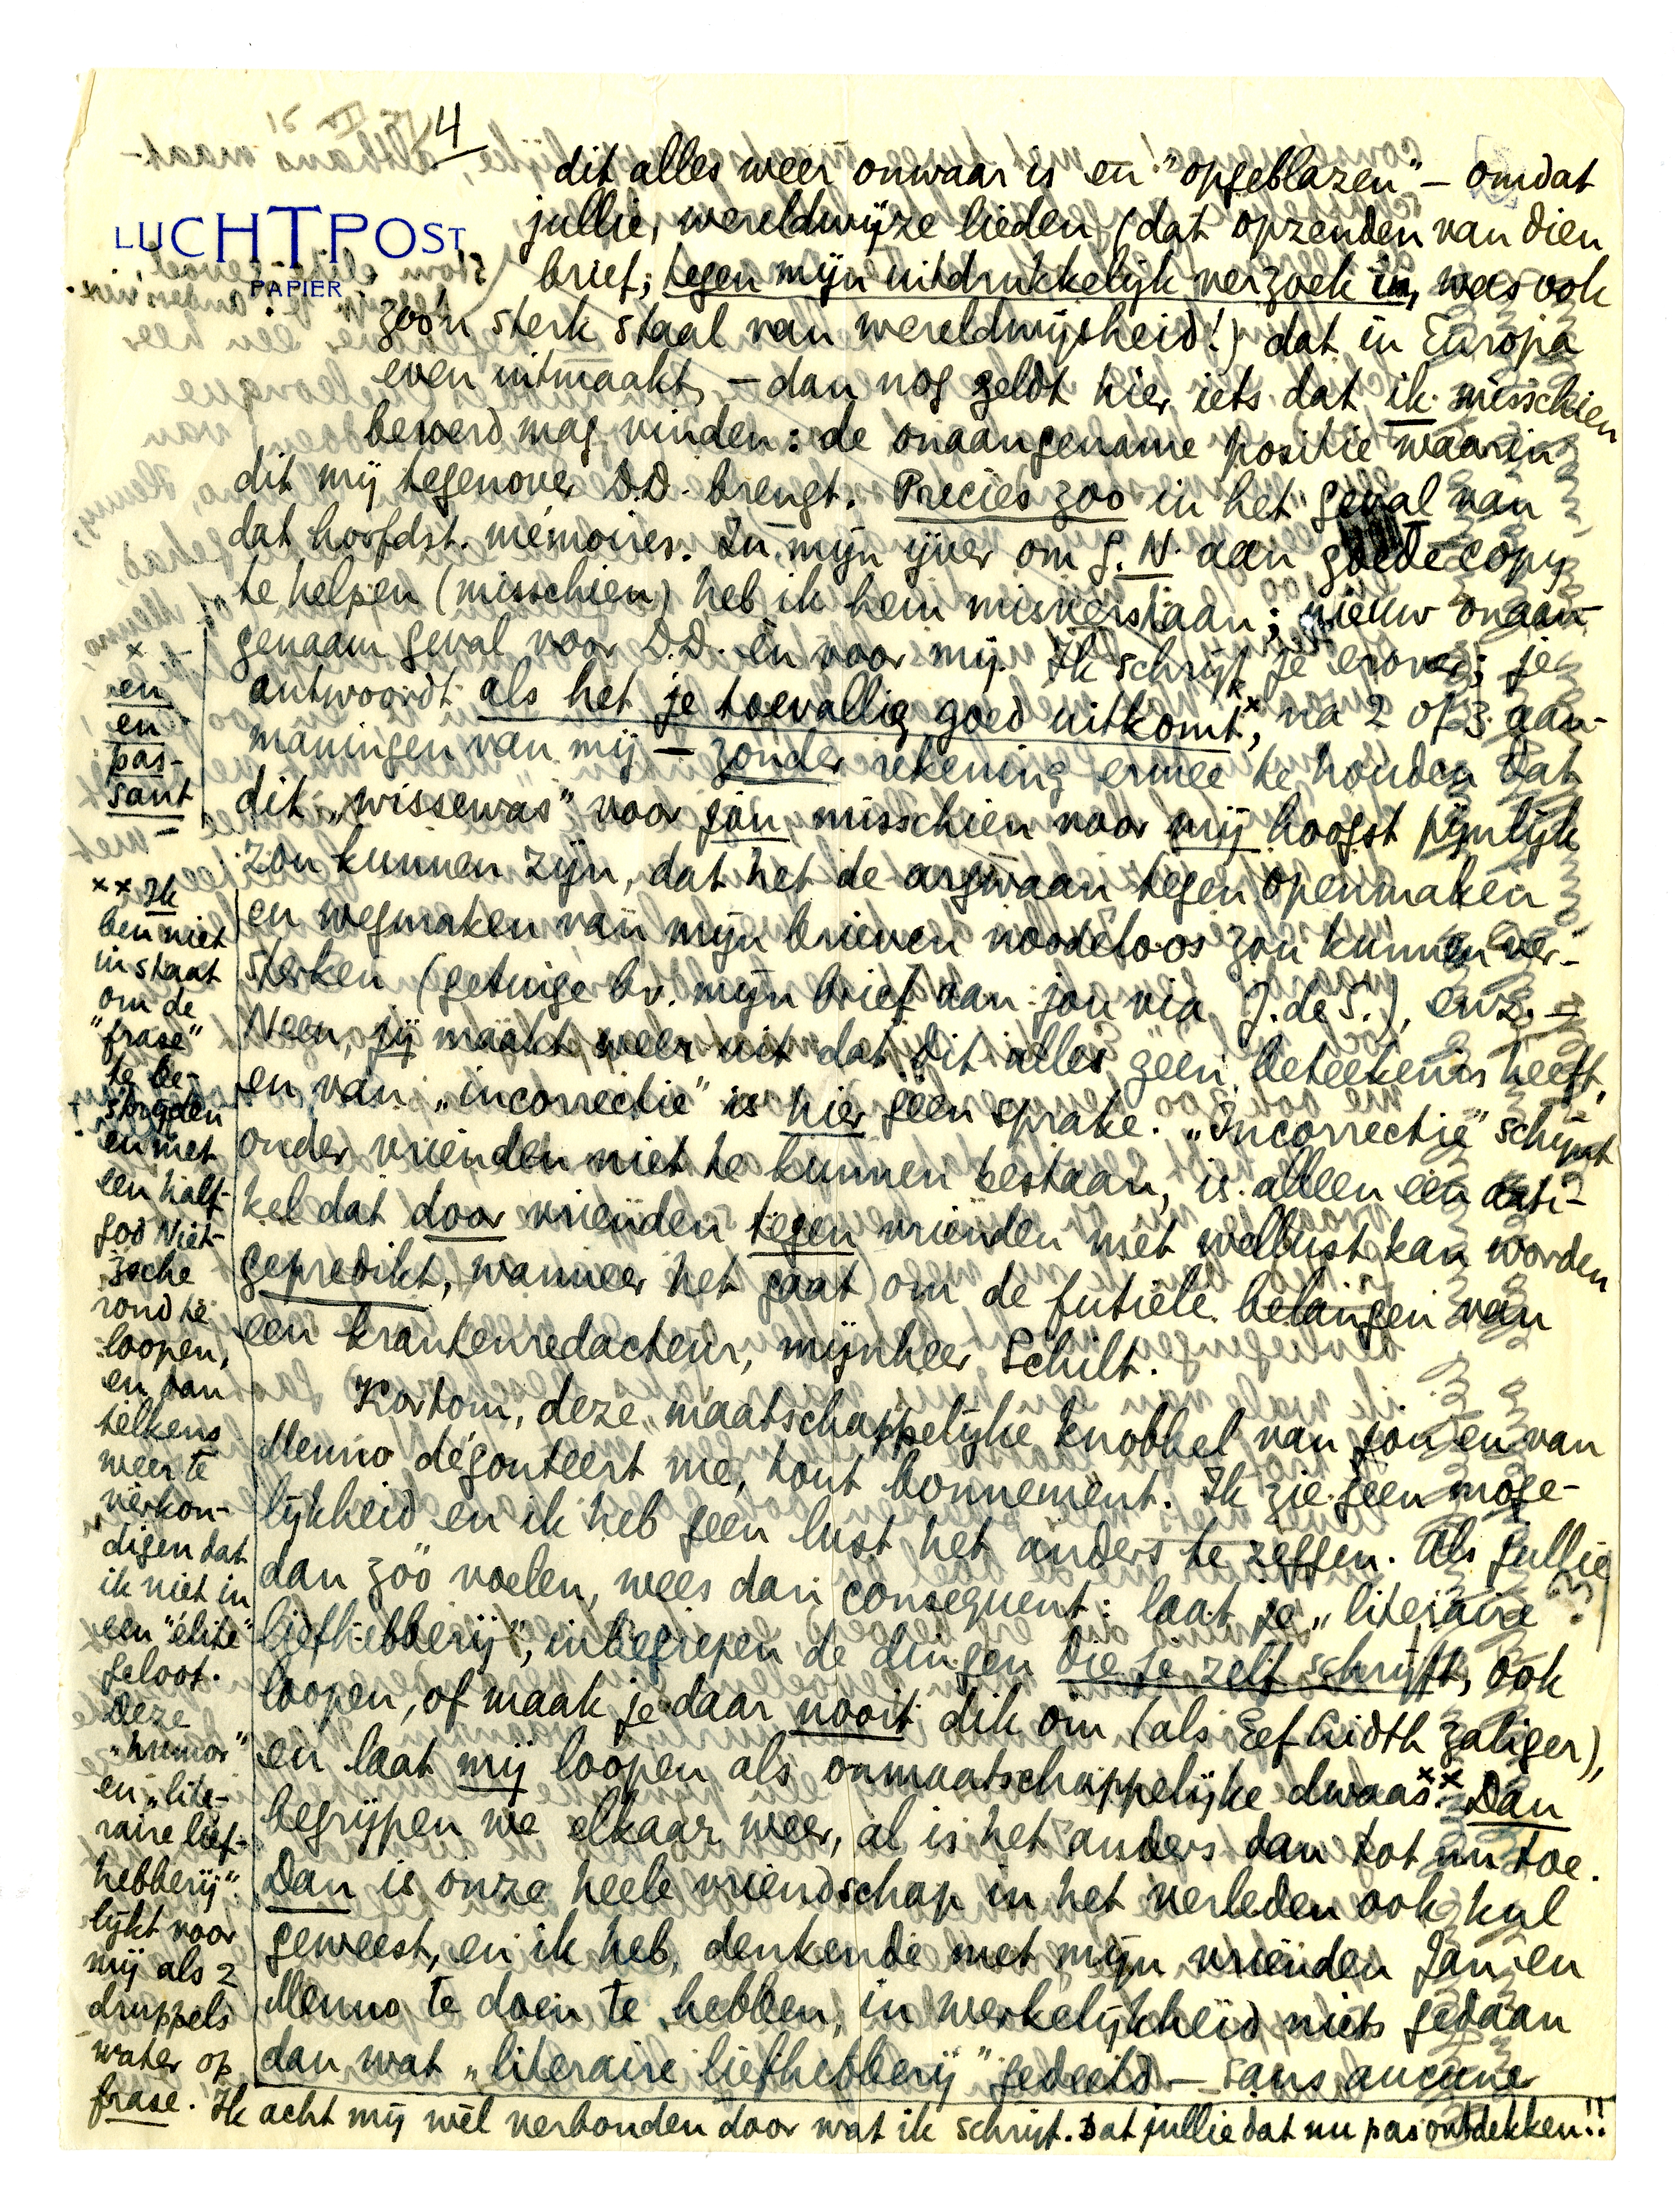 4
LUCHTPOST
PAPIER
dit alles weer onwaar is en "opgeblazen" – omdat
jullie, wereldwijze lieden (dat opzenden van dien
brief, tegen mijn uitdrukkelijk verzoek in, was ook
zoo'n sterk staal van wereldwijsheid!) dat in Europa
even uitmaakt, – dan nog geldt hier iets dat ik misschien
beweerd mag vinden: de onaangename positie waarin
dit mij tegenover D.D. brengt. Precies zoo in het geval van
dat hoofdst. mémoires. In mijn ijver om G.N. aan goede copy
te helpen (misschien) heb ik hem misverstaan; nieuw onaan-
genaam geval voor D.D. en voor mij. Ik schrijf je erover; je
antwoordt als het je toevallig goed uitkomt,× na 2 of 3 aan-
maningen van mij – zonder rekening ermee te houden dat
dit „wissewas" voor jou misschien voor mij hoogst pijnlijk
zou kunnen zijn, dat het de argwaan tegen openmaken
en wegmaken van mijn brieven noodeloos zou kunnen ver-
sterken (getuige bv. mijn brief aan jou via J. de S.), enz. –
Neen, jij maakt weer uit dat dit alles geen beteekenis heeft,
en van „incorrectie" is hier géén sprake. „Incorrectie" schijnt
onder vrienden niet te kunnen bestaan, is alleen een arti-
kel dat door vrienden tegen vrienden met wellust kan worden
gepredikt, wanneer het gaat om de futiele belangen van
een krantenredacteur, mijnheer Schilt.
Kortom, deze „maatschappelijke knobbel van jou en van
Menno dégouteert me, tout bonnement. Ik zie geen moge-
lijkheid en ik heb geen lust het anders te zeggen. Als jullie
dan zóó voelen, wees dan consequent: laat je „literaire
liefhebberij", inbegrepen de dingen die je zelf schrijft, ook
loopen, of maak je daar nooit dik om (als Eef Gidth zaliger),
en laat mij loopen als onmaatschappelijke dwaas.×× Dan
begrijpen we elkaar weer, al is het anders dan tot nu toe.
Dan is onze heele vriendschap in het verleden ook kul
geweest, en ik heb, denkende met mijn vrienden Jan en
Menno te doen te hebben, in werkelijkheid niets gedaan
dan wat „literaire liefhebberij" gedeeld – sans aucune
×
en
en
pas-
sant
×× Ik
ben niet
in staat
om de
"frase"
te be-
strijden
en met
een half-
god Niet-
zsche
rond te
loopen,
en dan
telkens
weer te
verkon-
digen dat
ik niet in
een "élite"
geloof.
Deze
„humor"
en „lite-
raire lief-
hebberij"
lijkt voor
mij als 2
druppels
water op
frase. Ik acht mij wèl verbonden door wat ik schrijf. Dat jullie dat nu pas ontdekken!!